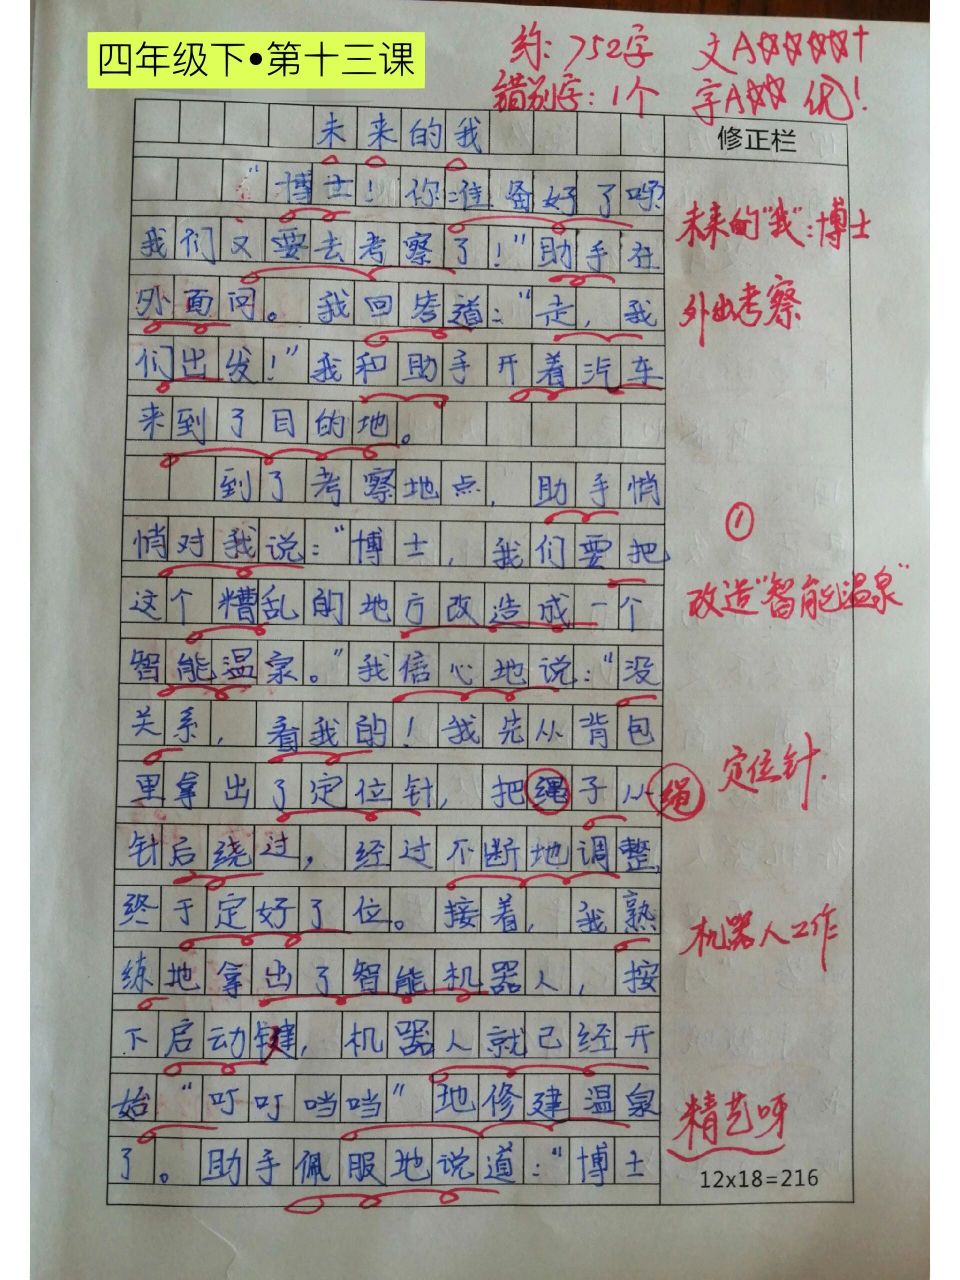 四年级下•第十三课
约:752字 文A☆☆☆☆+
错别字:1个 字A☆☆ 优!
未来的我
修正栏
"博士!你准备好了吗?
我们又要去考察了!"助手在
外面问。我回答道:"走,我
们出发!"我和助手开着汽车
来到了目的地。
到了考察地点,助手悄
悄对我说:"博士,我们要把
这个糟乱的地方改造成一个
智能温泉。"我信心地说:"没
关系,看我的!我先从背包
里拿出了定位针,把绳子从
针后绕过,经过不断地调整,
终于定好了位。接着,我熟
练地拿出了智能机器人,按
下启动键,机器人就已经开
始"叮叮当当"地修建温泉
了。助手佩服地说道:"博士
未来的"我":博士
外出考察
①
改造"智能温泉"
绳
定位针.
机器人工作
精艺呀
12x18=216